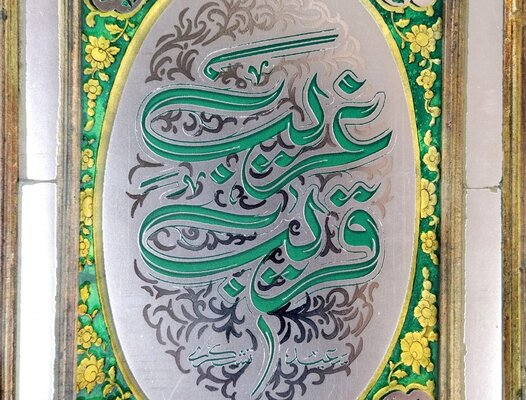 غریب
قریب